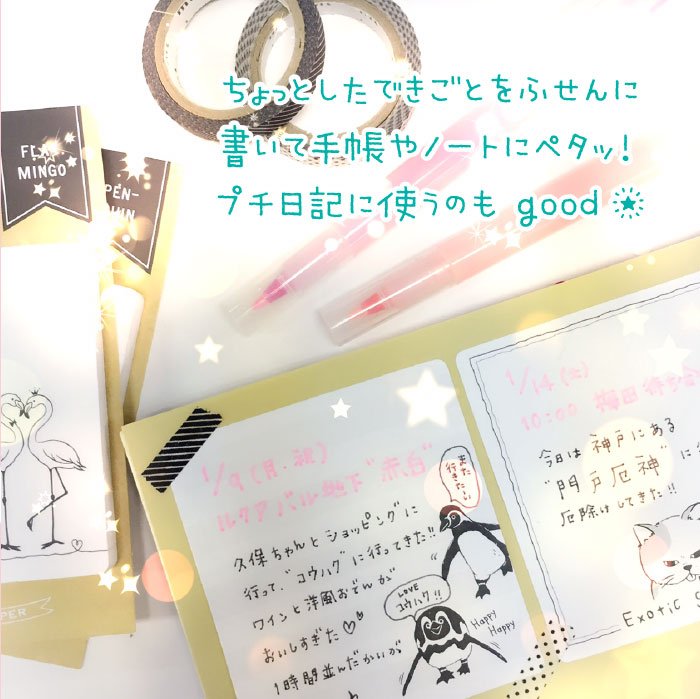 ちょっとしたできごとをふせんに
書いて手帳やノートにペタッ!
プチ日記に使うのも good
MINGO
PEN-
1/9(月・祝)
ルクアバル地下"赤白"
久保ちゃんとショッピングに
行って、"コウハク"に行ってきた!!
ワインと洋風おでんが
おいしすぎた♡♡
1時間並んだかいが
また
行きたい
LOVE
コウハク!!
Happy
Happy
1/14(土)
10:00 梅田待ち合
今日は神戸にある
"門戸厄神"に
厄除けしてきた!!
Exotic
PER